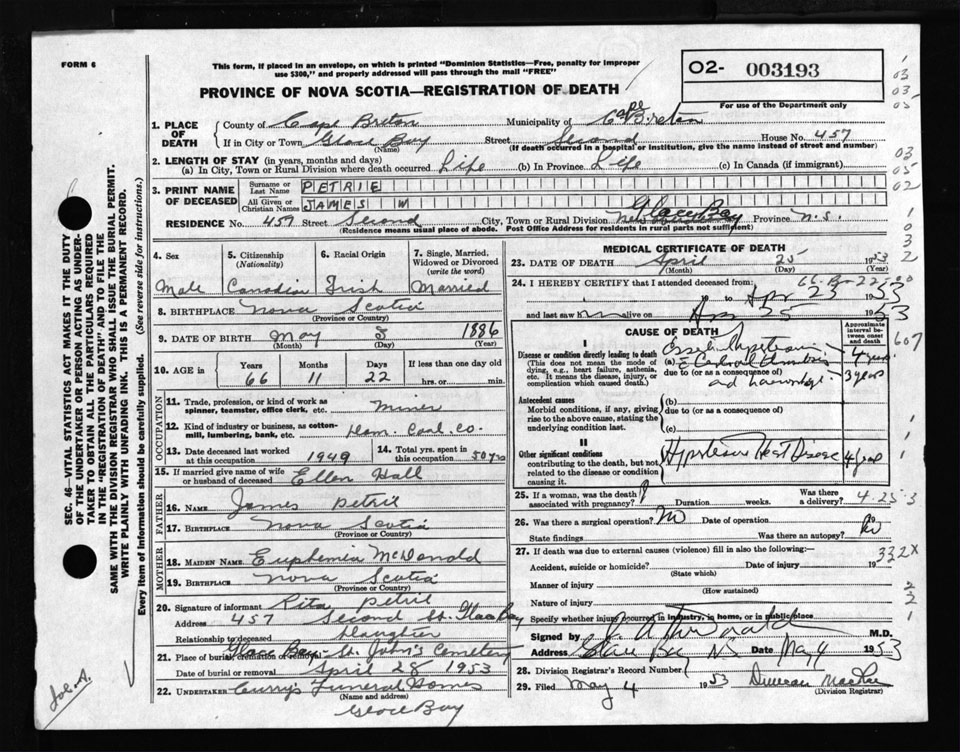 FORM 6
This form, if placed in an envelope, on which is printed "Dominion Statistics—Free, penalty for improper
use $300," and properly addressed will pass through the mail "FREE"
O2- 003193
PROVINCE OF NOVA SCOTIA—REGISTRATION OF DEATH
For use of the Department only
1. PLACE OF DEATH
County of Cape Breton Municipality of Cape Breton
If in City or Town Glace Bay Street Second House No. 457
(Name) (If death occurred in a hospital or institution, give the name instead of street and number)
2. LENGTH OF STAY (in years, months and days)
(a) In City, Town or Rural Division where death occurred Life (b) In Province Life (c) In Canada (if immigrant)
3. PRINT NAME OF DECEASED
Surname or Last Name PETRIE
All Given or Christian Names JAMES W
RESIDENCE No. 457 Street Second City, Town or Rural Division Glace Bay Province N.S.
(Residence means usual place of abode. Post Office Address for residents in rural parts not sufficient)
4. Sex
Male
5. Citizenship
(Nationality)
Canadian
6. Racial Origin
Irish
7. Single, Married, Widowed or Divorced
(write the word)
Married
8. BIRTHPLACE Nova Scotia
(Province or Country)
9. DATE OF BIRTH May 3 1886
(Month) (Day) (Year)
10. AGE in Years Months Days If less than one day old
66 11 22 hrs. or min.
OCCUPATION
11. Trade, profession, or kind of work as
spinner, teamster, office clerk, etc. Miner
12. Kind of industry or business, as cotton-
mill, lumbering, bank, etc. Dom. Coal. Co.
13. Date deceased last worked
at this occupation 1949
14. Total yrs. spent in
this occupation 50 yrs
15. If married give name of wife
or husband of deceased Ellen Hall
FATHER
16. Name James Petrie
17. Birthplace Nova Scotia
(Province or Country)
MOTHER
18. MAIDEN NAME Euphemia McDonald
19. BIRTHPLACE Nova Scotia
(Province or Country)
20. Signature of informant Rita Petrie
Address 457 Second St. Glace Bay
Relationship to deceased Daughter
21. Place of burial, cremation or removal Glace Bay St. John's Cemetery
Date of burial or removal April 28 1953
22. UNDERTAKER Curry's Funeral Homes
(Name and address)
Glace Bay
MEDICAL CERTIFICATE OF DEATH
23. DATE OF DEATH April 25 1953
(Month) (Day) (Year)
24. I HEREBY CERTIFY that I attended deceased from:
to Apr 23 1953
and last saw him alive on Apr 25 1953
CAUSE OF DEATH
Approximate interval between onset and death
I
Disease or condition directly leading to death
(This does not mean the mode of
dying, e.g., heart failure, asthenia,
etc. It means the disease, injury, or
complication which caused death.)
(a)
due to (or as a consequence of)
4 years
3 years
Antecedent causes
Morbid conditions, if any, giving
rise to the above cause, stating the
underlying condition last.
(b)
due to (or as a consequence of)
(c)
II
Other significant conditions
contributing to the death, but not
related to the disease or condition
causing it.
Heart Disease
25. If a woman, was the death
associated with pregnancy? Duration weeks. Was there a delivery?
4-25-3
26. Was there a surgical operation? No Date of operation
State findings Was there an autopsy? No
27. If death was due to external causes (violence) fill in also the following:—
332X
Accident, suicide or homicide? Date of injury 19
(State which)
Manner of injury
(How sustained)
Nature of injury
Specify whether injury occurred in industry, in home, or in public place
Signed by M.D.
Address Glace Bay NS Date May 4 1953
28. Division Registrar's Record Number
29. Filed May 4 1953 Duncan MacRae
(Division Registrar)
SEC. 46—VITAL STATISTICS ACT MAKES IT THE DUTY
OF THE UNDERTAKER OR PERSON ACTING AS UNDER-
TAKER TO OBTAIN ALL THE PARTICULARS REQUIRED
IN THE "REGISTRATION OF DEATH" AND TO FILE THE
SAME WITH THE DIVISION REGISTRAR WHO SHALL ISSUE THE BURIAL PERMIT.
WRITE PLAINLY WITH UNFADING INK. THIS IS A PERMANENT RECORD.
Every item of information should be carefully supplied. (See reverse side for instructions.)